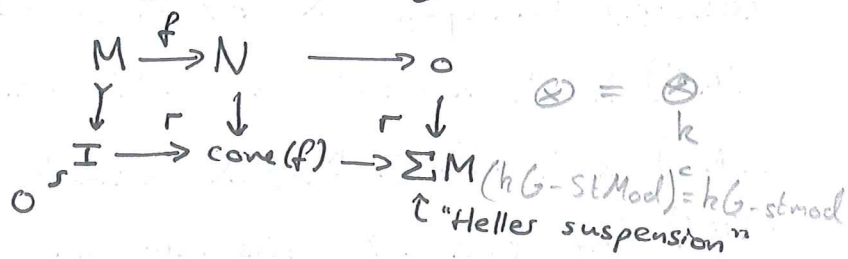 f
M → N → 0
⊗ = ⊗
k
I → cone(f) → ΣM (kG-StMod)ᶜ = kG-stmod
0 ≅
↑ "Heller suspension"